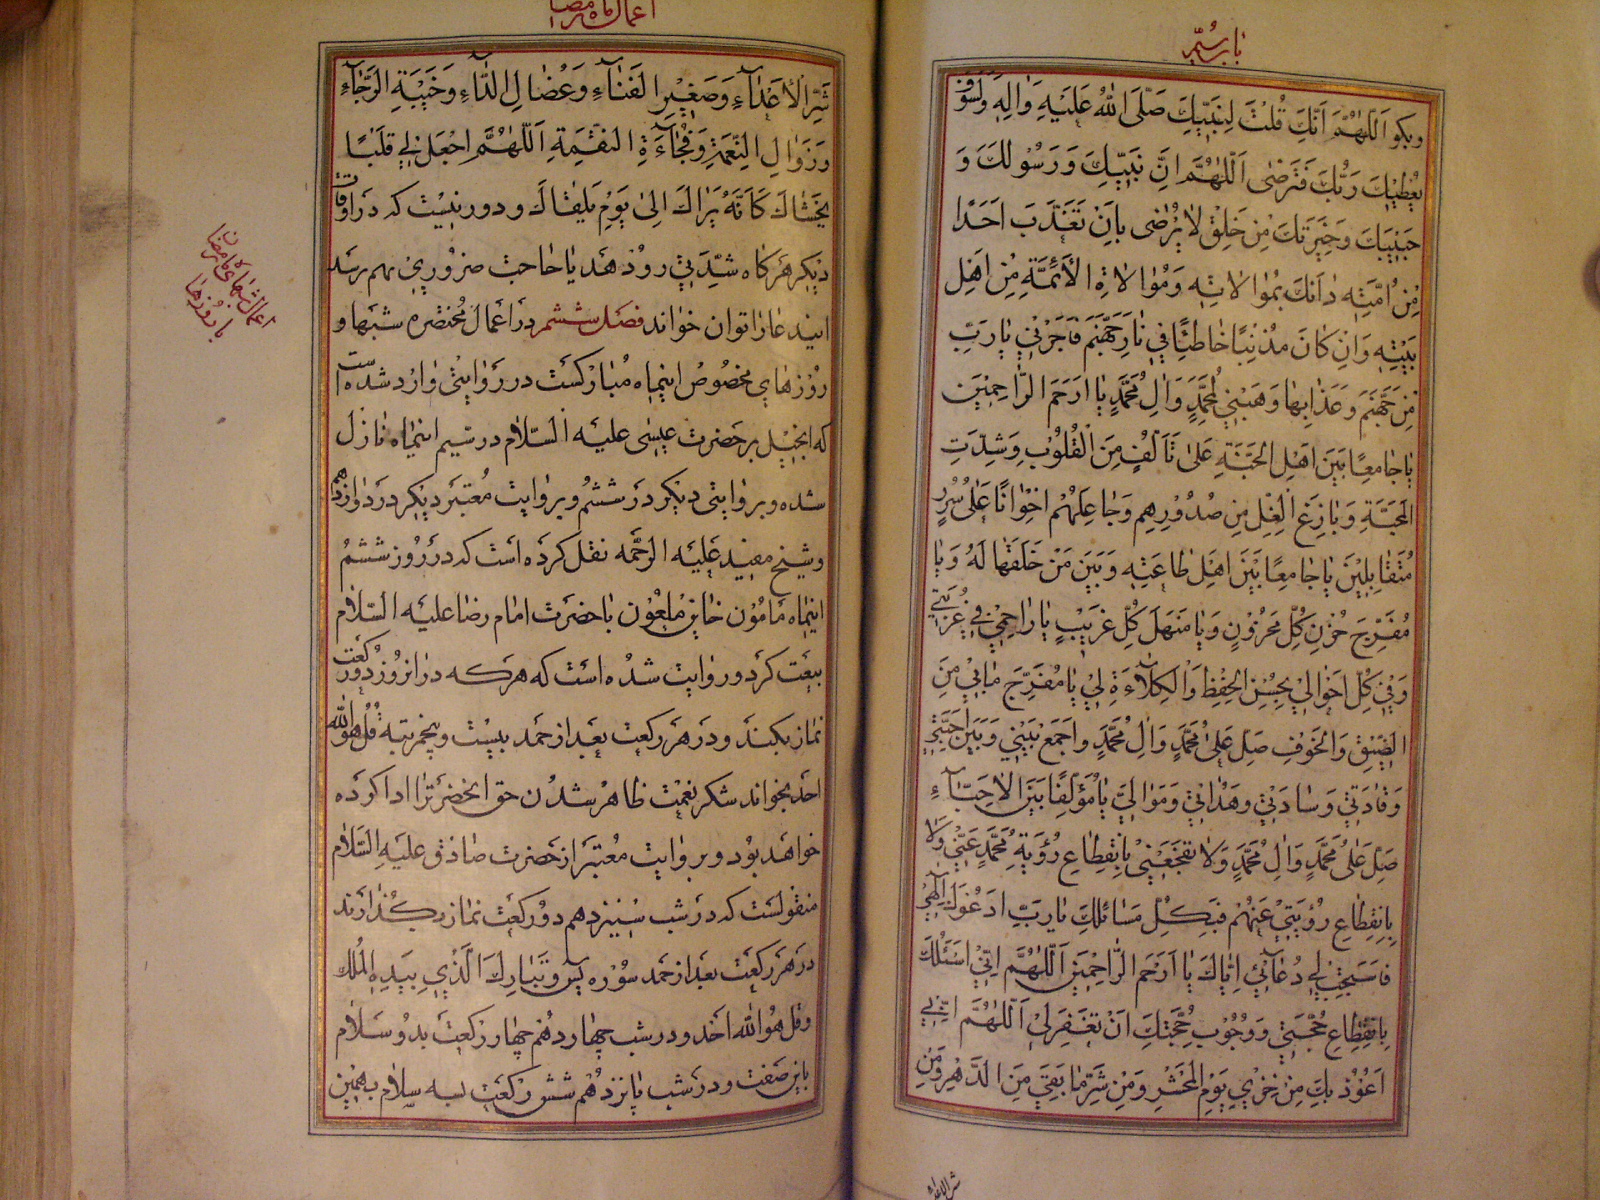 باب سیّم
وبكوا اَللّهُمَّ اِنَّكَ قُلْتَ لِنَبِيِّكَ صَلَّى اللهُ عَلَيْهِ وَالِهِ وَلَسَوْفَ
يُعْطِيْكَ رَبُّكَ فَتَرْضٰى اَللّٰهُمَّ اِنَّ نَبِيَّكَ وَرَسُوْلَكَ وَ
حَبِيْبَكَ وَخِيَرَتَكَ مِنْ خَلْقِكَ لَا يَرْضٰى بِاَنْ تُعَذِّبَ اَحَدًا
مِنْ اُمَّتِهِ دٰانَكَ بِمُوٰالَاتِهِ وَمُوٰالَاةِ الْأَئِمَّةِ مِنْ اَهْلِ
بَيْتِهِ وَاِنْ كَانَ مُذْنِبًا خَاطِئًا فِي نَارِ جَهَنَّمَ فَاَجِرْنِي يَا رَبِّ
مِنْ جَهَنَّمَ وَعَذَابِهَا وَهَبْنِي لِمُحَمَّدٍ وَالِ مُحَمَّدٍ يَا اَرْحَمَ الرَّاحِمِيْنَ
يَا جَامِعًا بَيْنَ اَهْلِ الْجَنَّةِ عَلٰى تَاَلُّفٍ مِنَ الْقُلُوْبِ وَشِدَّتِ
الْمَحَبَّةِ وَيَا نَازِعَ الْغِلِّ مِنْ صُدُوْرِهِمْ وَجَاعِلَهُمْ اِخْوَانًا عَلٰى سُرُرٍ
مُتَقَابِلِيْنَ يَا جَامِعًا بَيْنَ اَهْلِ طَاعَتِهِ وَبَيْنَ مَنْ خَلَقَهَا لَهُ وَيَا
مُفَرِّجَ حُزْنِ كُلِّ مَحْزُوْنٍ وَيَا مَنْهَلَ كُلِّ غَرِيْبٍ يَا رَاحِمِي فِي غُرْبَتِي
وَفِي كُلِّ اَحْوَالِي بِحُسْنِ الْحِفْظِ وَالْكِلَاءَةِ لِي يَا مُفَرِّجَ مَا بِي مِنَ
الضِّيْقِ وَالْخَوْفِ صَلِّ عَلٰى مُحَمَّدٍ وَالِ مُحَمَّدٍ وَاجْمَعْ بَيْنِي وَبَيْنَ اَحِبَّتِي
وَقَادَتِي وَسَادَتِي وَهُدَاتِي وَمَوَالِيَّ يَا مُؤَلِّفًا بَيْنَ الْاَحِبَّاءِ
صَلِّ عَلٰى مُحَمَّدٍ وَالِ مُحَمَّدٍ وَلَا تَفْجَعْنِي بِانْقِطَاعِ رُؤْيَةِ مُحَمَّدٍ عَنِّي وَلَا
بِانْقِطَاعِ رُؤْيَتِي عَنْهُمْ فَبِكُلِّ مَسَائِلِكَ يَا رَبِّ اَدْعُوْكَ اِلٰهِي
فَاسْتَجِبْ لِي دُعَائِي اِيَّاكَ يَا اَرْحَمَ الرَّاحِمِيْنَ اَللّٰهُمَّ اِنِّي اَسْئَلُكَ
بِانْقِطَاعِ حُجَّتِي وَوُجُوْبِ حُجَّتِكَ اَنْ تَغْفِرَ لِي اَللّٰهُمَّ اِنِّي
اَعُوْذُ بِكَ مِنْ خِزْيِ يَوْمِ الْمَحْشَرِ وَمِنْ شَرِّ مَا بَقِيَ مِنَ الدَّهْرِ وَمِنْ
شر الاعداء
اعمال ماه رمضان
شَرِّ الْاَعْدَاءِ وَصَغِيْرِ الْفَنَاءِ وَعُضَالِ الدَّاءِ وَخَيْبَةِ الرَّجَاءِ
وَزَوَالِ النِّعْمَةِ وَفُجَاءَةِ النَّقِمَةِ اَللّٰهُمَّ اجْعَلْ لِي قَلْبًا
يَخْشَاكَ كَاَنَّهُ يَرَاكَ اِلٰى يَوْمِ يَلْقَاكَ و دور نیست که در اوقات
دیگر هرگاه شدّتی رو دهد یا حاجت ضروری بهم رسد
این دعا را توان خواند فصل ششم در اعمال مختصره شبها و
روزهای مخصوص اینماه مبارکست در روایتی وارد شده است
که انجیل بر حضرت عیسی علیه السّلام در سیم اینماه نازل
شده و بروایتی دیگر در ششم و بروایت معتبر دیگر در دوازدهم
و شیخ مفید علیه الرحمه نقل کرده است که در روز ششم
اینماه مامون خائن ملعون با حضرت امام رضا علیه السّلام
بیعت کرد و روایت شده است که هرکه در انروز دو رکعت
نماز بکند و در هر رکعت بعد از حمد بیست و پنجمرتبه قل هو الله
احد بخواند شکر نعمت ظاهر شدن حق انحضرترا ادا کرده
خواهد بود و بروایت معتبر از حضرت صادق علیه السّلام
منقولست که در شب سنیزدهم دو رکعت نماز بگذارند
در هر رکعت بعد از حمد سوره یس و تبارك الّذی بیده الملك
و قل هو الله احد و در شب چهاردهم چهار رکعت بدو سلام
باین صفت و در شب پانزدهم شش رکعت بسه سلام بهمین
اعمال شبهای ماه رمضان
با روزها